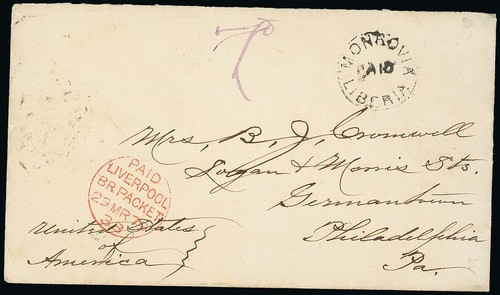 MONROVIA
PAID
LIBERIA
Mrs. B. J. Cromwell
Logan & Morris Sts.
Germantown
Philadelphia
Pa.
PAID
LIVERPOOL
BR. PACKET
23 MR
United States
of
America